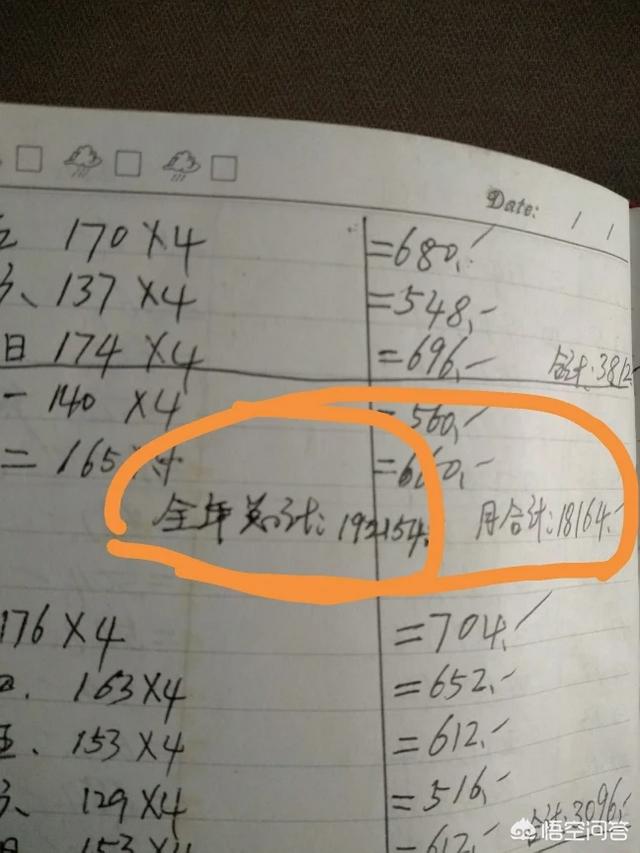 Date: / /
五 170×4 =680.-
137×4 =548.-
日 174×4 =696.- 合计:3812.-
一 140×4 =560.-
二 165×4 =660.-
全年总计:192154. 月合计:18164.-
176×4 =704.-
四. 163×4 =652.-
五. 153×4 =612.-
129×4 =516.-
合计:3096.-
日 153×4 =612.-
悟空问答